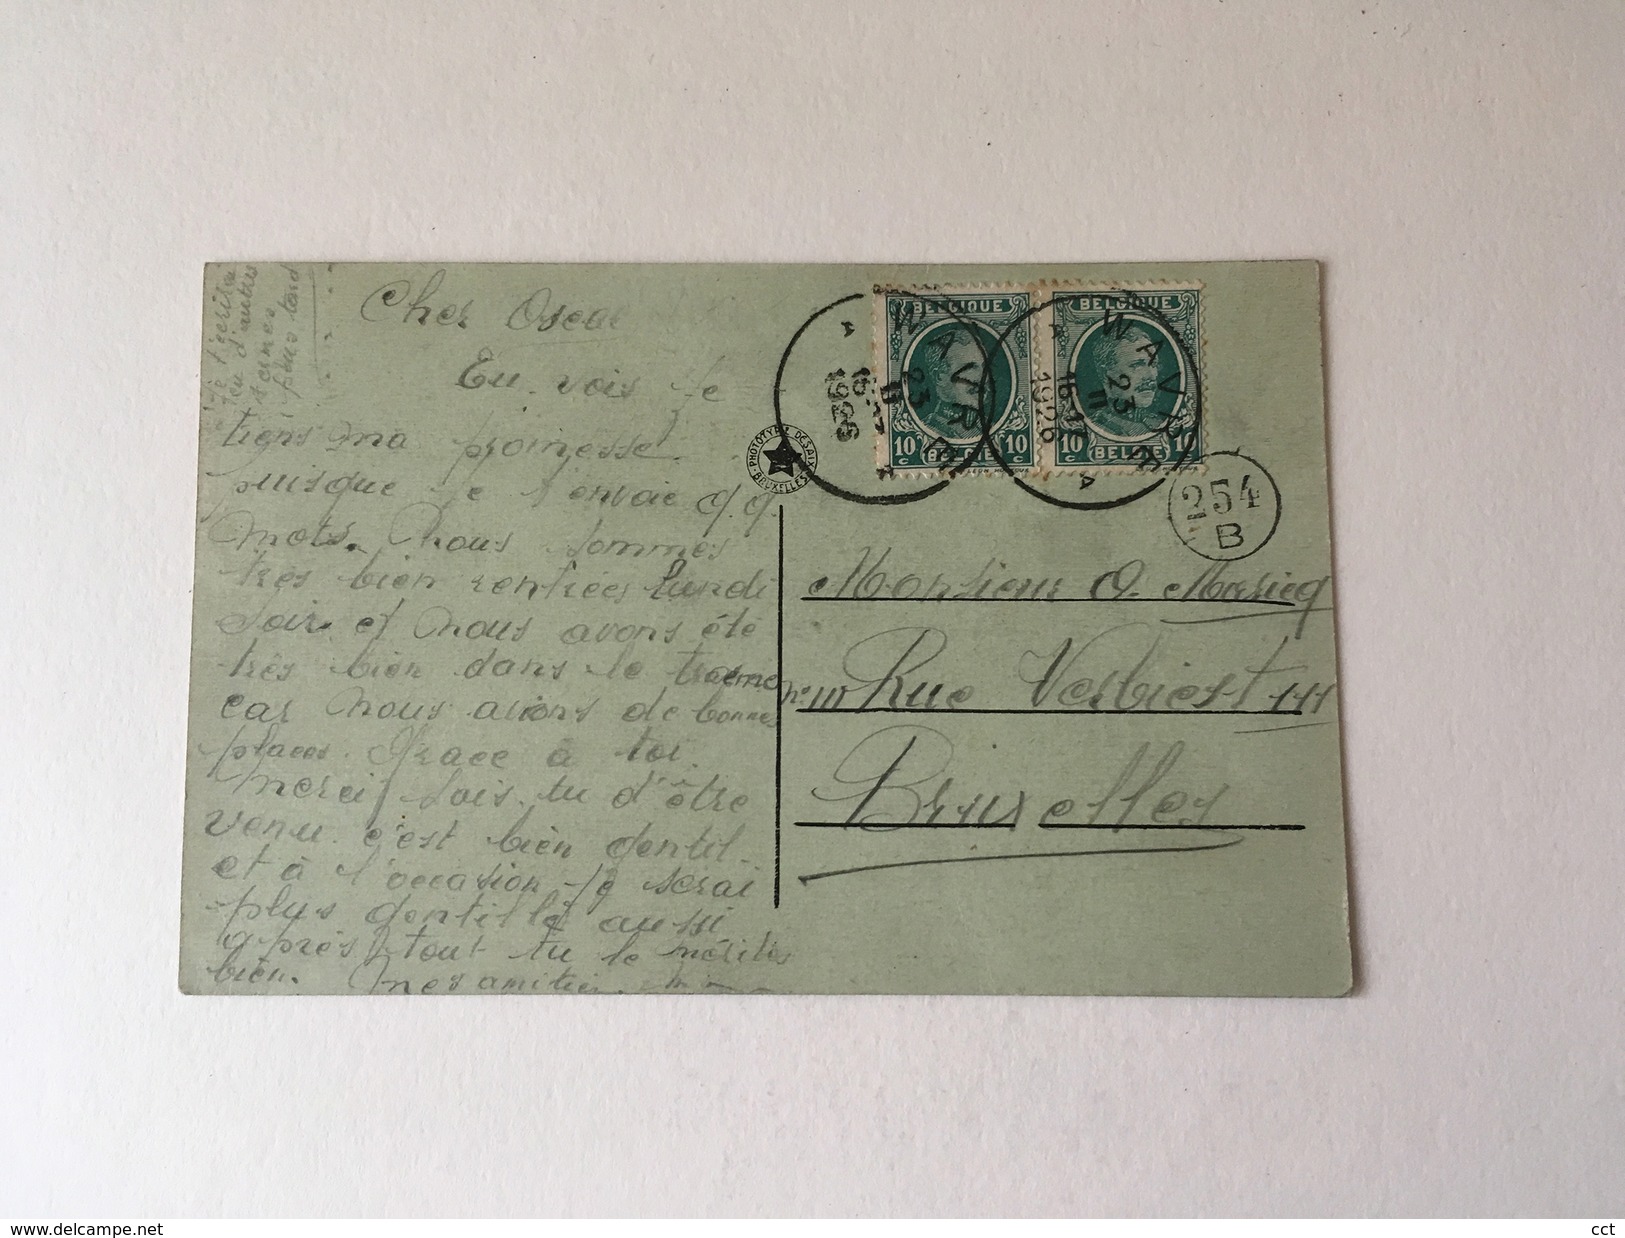 Je t'écrirai
en d'autres
termes
plus tard
Cher Oscar
Tu vois je
tiens ma promesse
puisque je t'envoie q.q.
mots. Nous sommes
très bien rentrées lundi
soir et nous avons été
très bien dans le
car nous avions de bonnes
places. Grace à toi.
Merci sois-tu d'être
venu c'est bien gentil
et à l'occasion je serai
plus gentille aussi
après tout tu le mérites
bien. Mes amitiés
PHOTOTYPIE DESAIX
BRUXELLES
BELGIQUE
10 c 10 c
BELGIË
BELGIQUE
10 c 10 c
BELGIË
WAVRE
23
11
1926
A
WAVRE
23
11
1926
A
254
B
Monsieur O.
Rue Verbiest
Bruxelles
delcampe.net
cct